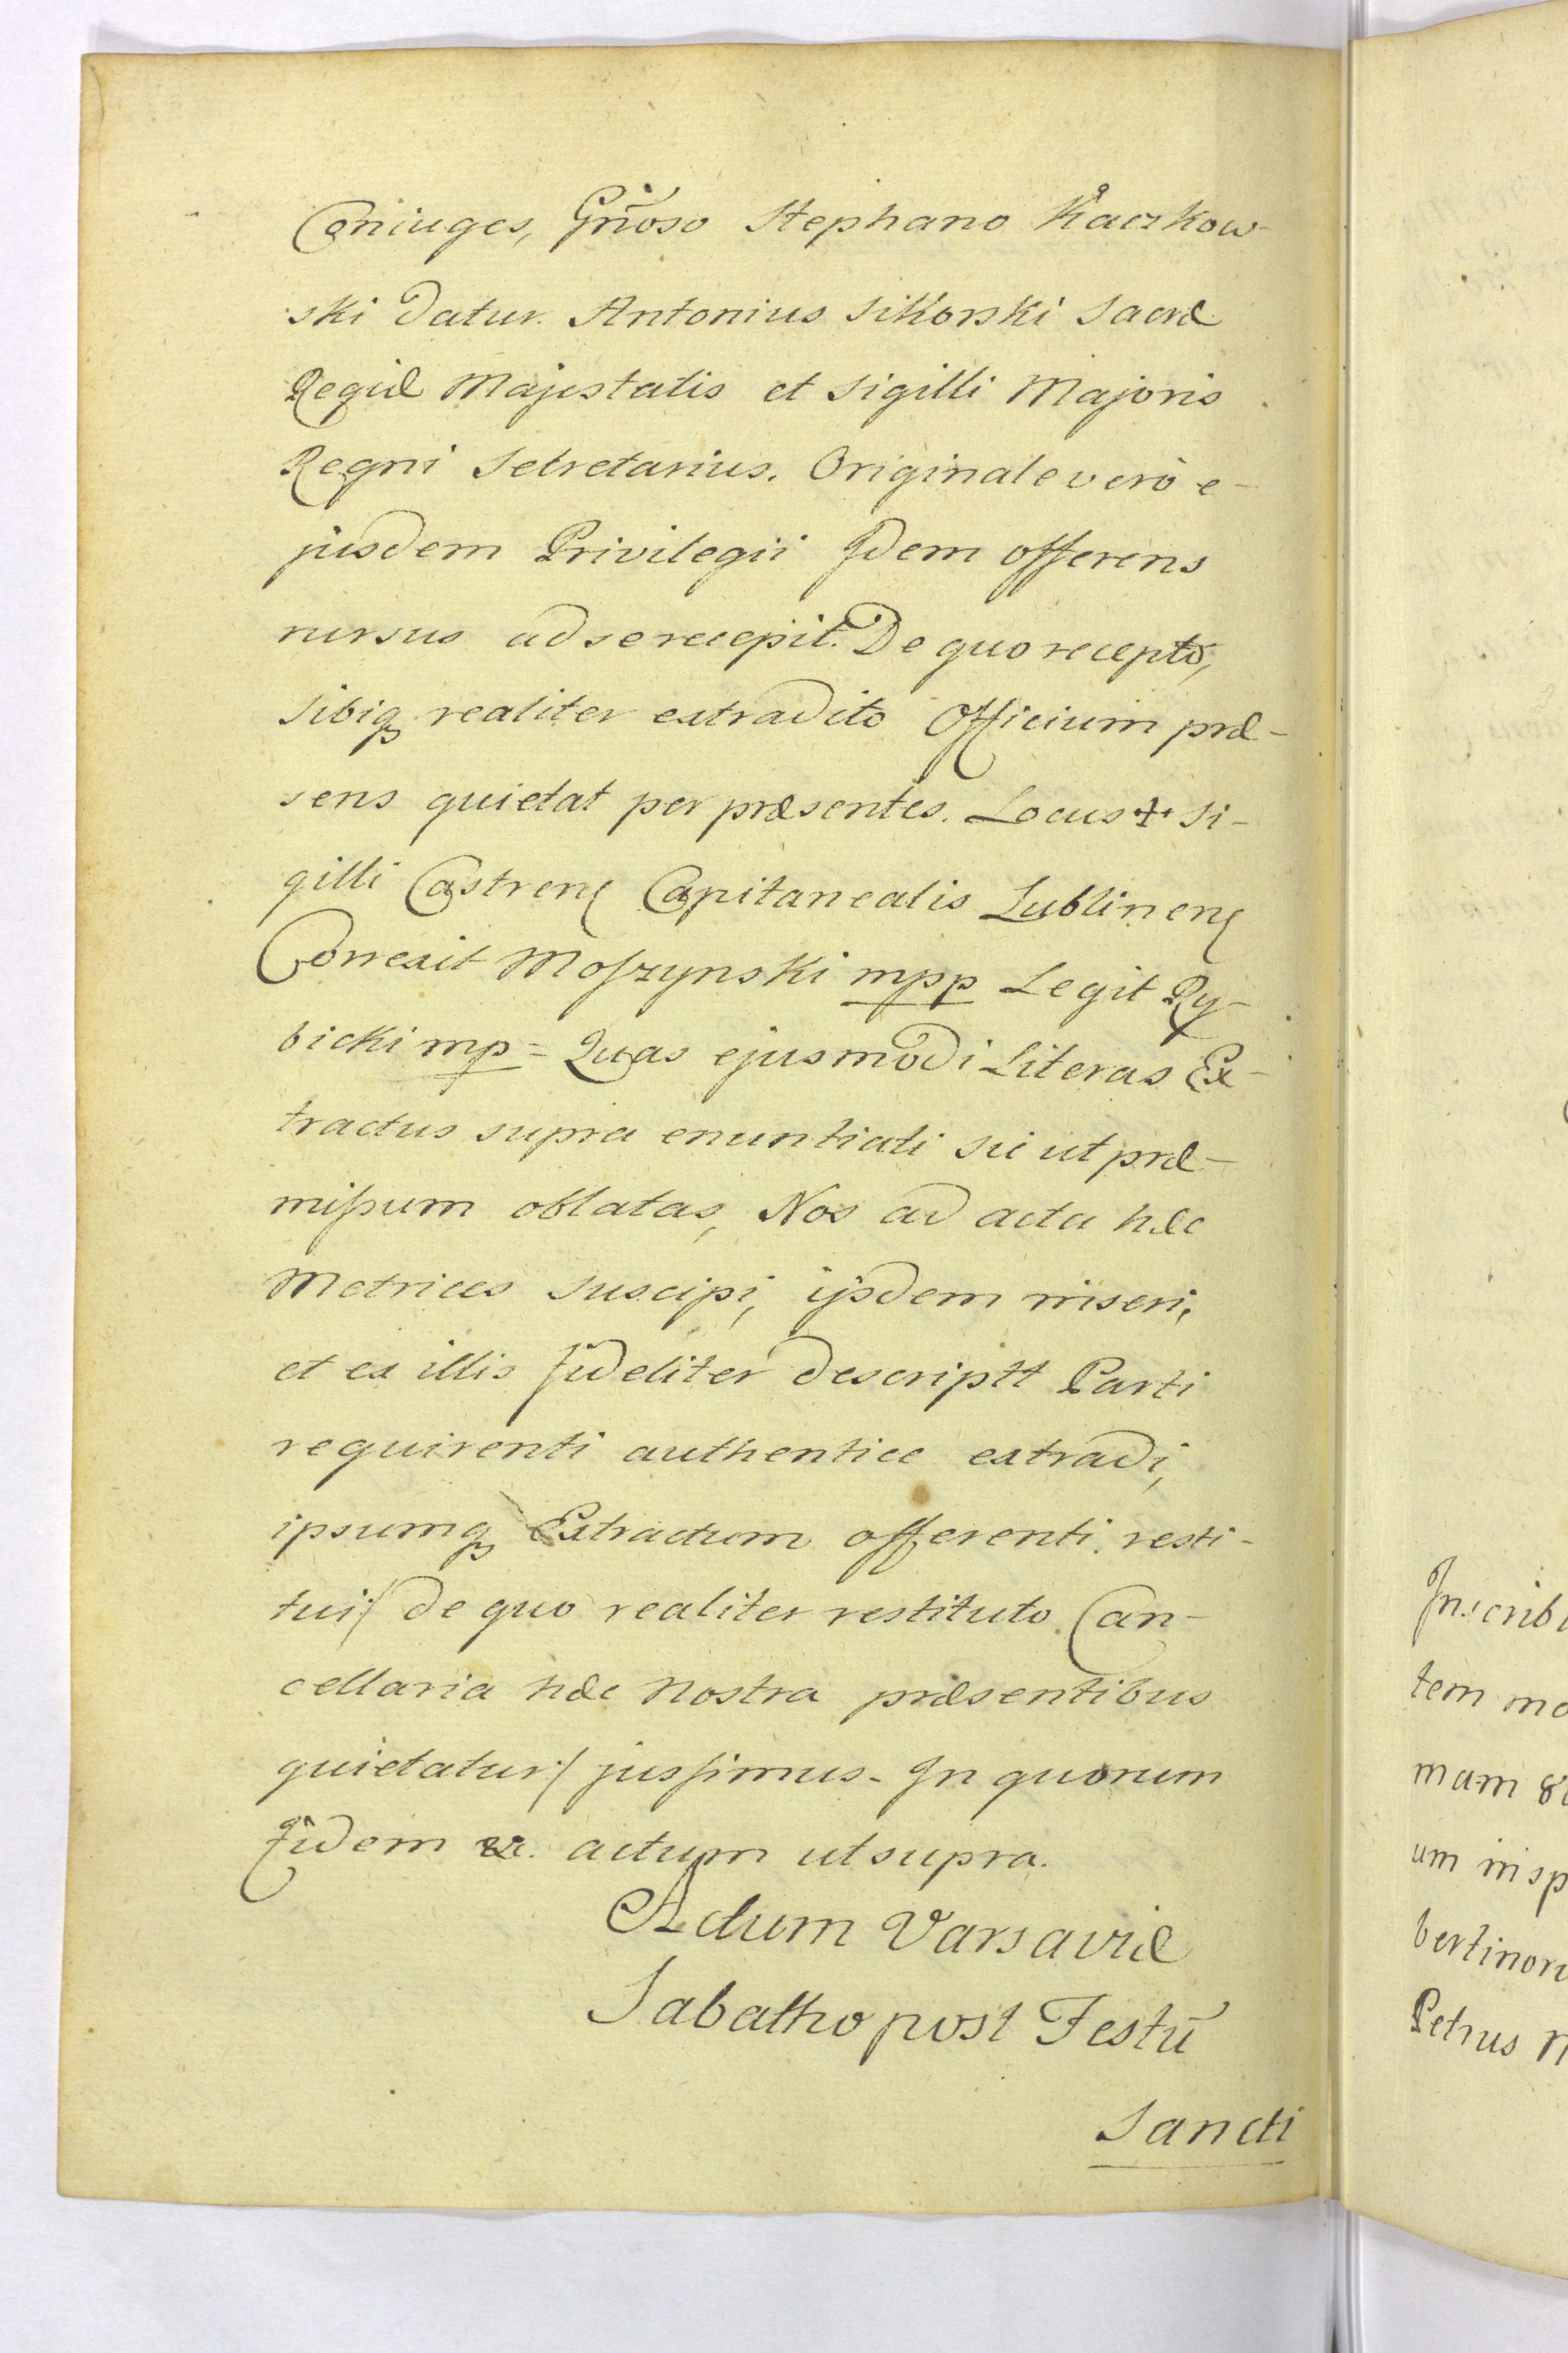 Coniuges, Gñoso Stephano Kaczkow-
ski datur. Antonius Sikorski Sacræ
Regiæ Majestatis et Sigilli Majoris
Regni Secretarius. Originale verò e-
jusdem Privilegii Idem offerens
rursus ad se recepit. De quo recepto,
sibiq₃ realiter extradito Officium præ-
sens quietat per præsentes. Locus ✢ Si-
gilli Castren Capitanealis Lublinen
Correxit Moszynski mpp Legit Ry-
bicki mp = Quas ejusmodi Literas Ex-
tractus supra enuntiati sic ut præ-
missum oblatas, Nos ad acta hæc
Metrices suscipi, ijsdem inseri,
et ex illis fideliter descriptt Parti
requirenti authentice extradi,
ipsumq₃ Extractum offerenti resti-
tui /: de quo realiter restituto Can-
cellaria hæc Nostra præsentibus
quietatur :/ jussimus. In quorum
Fidem &c. actum ut supra.
Actum Varsaviæ
Sabatho post Festū
Sancti
Inscrib
tem mo
mam
um insp
bertinoru
Petrus